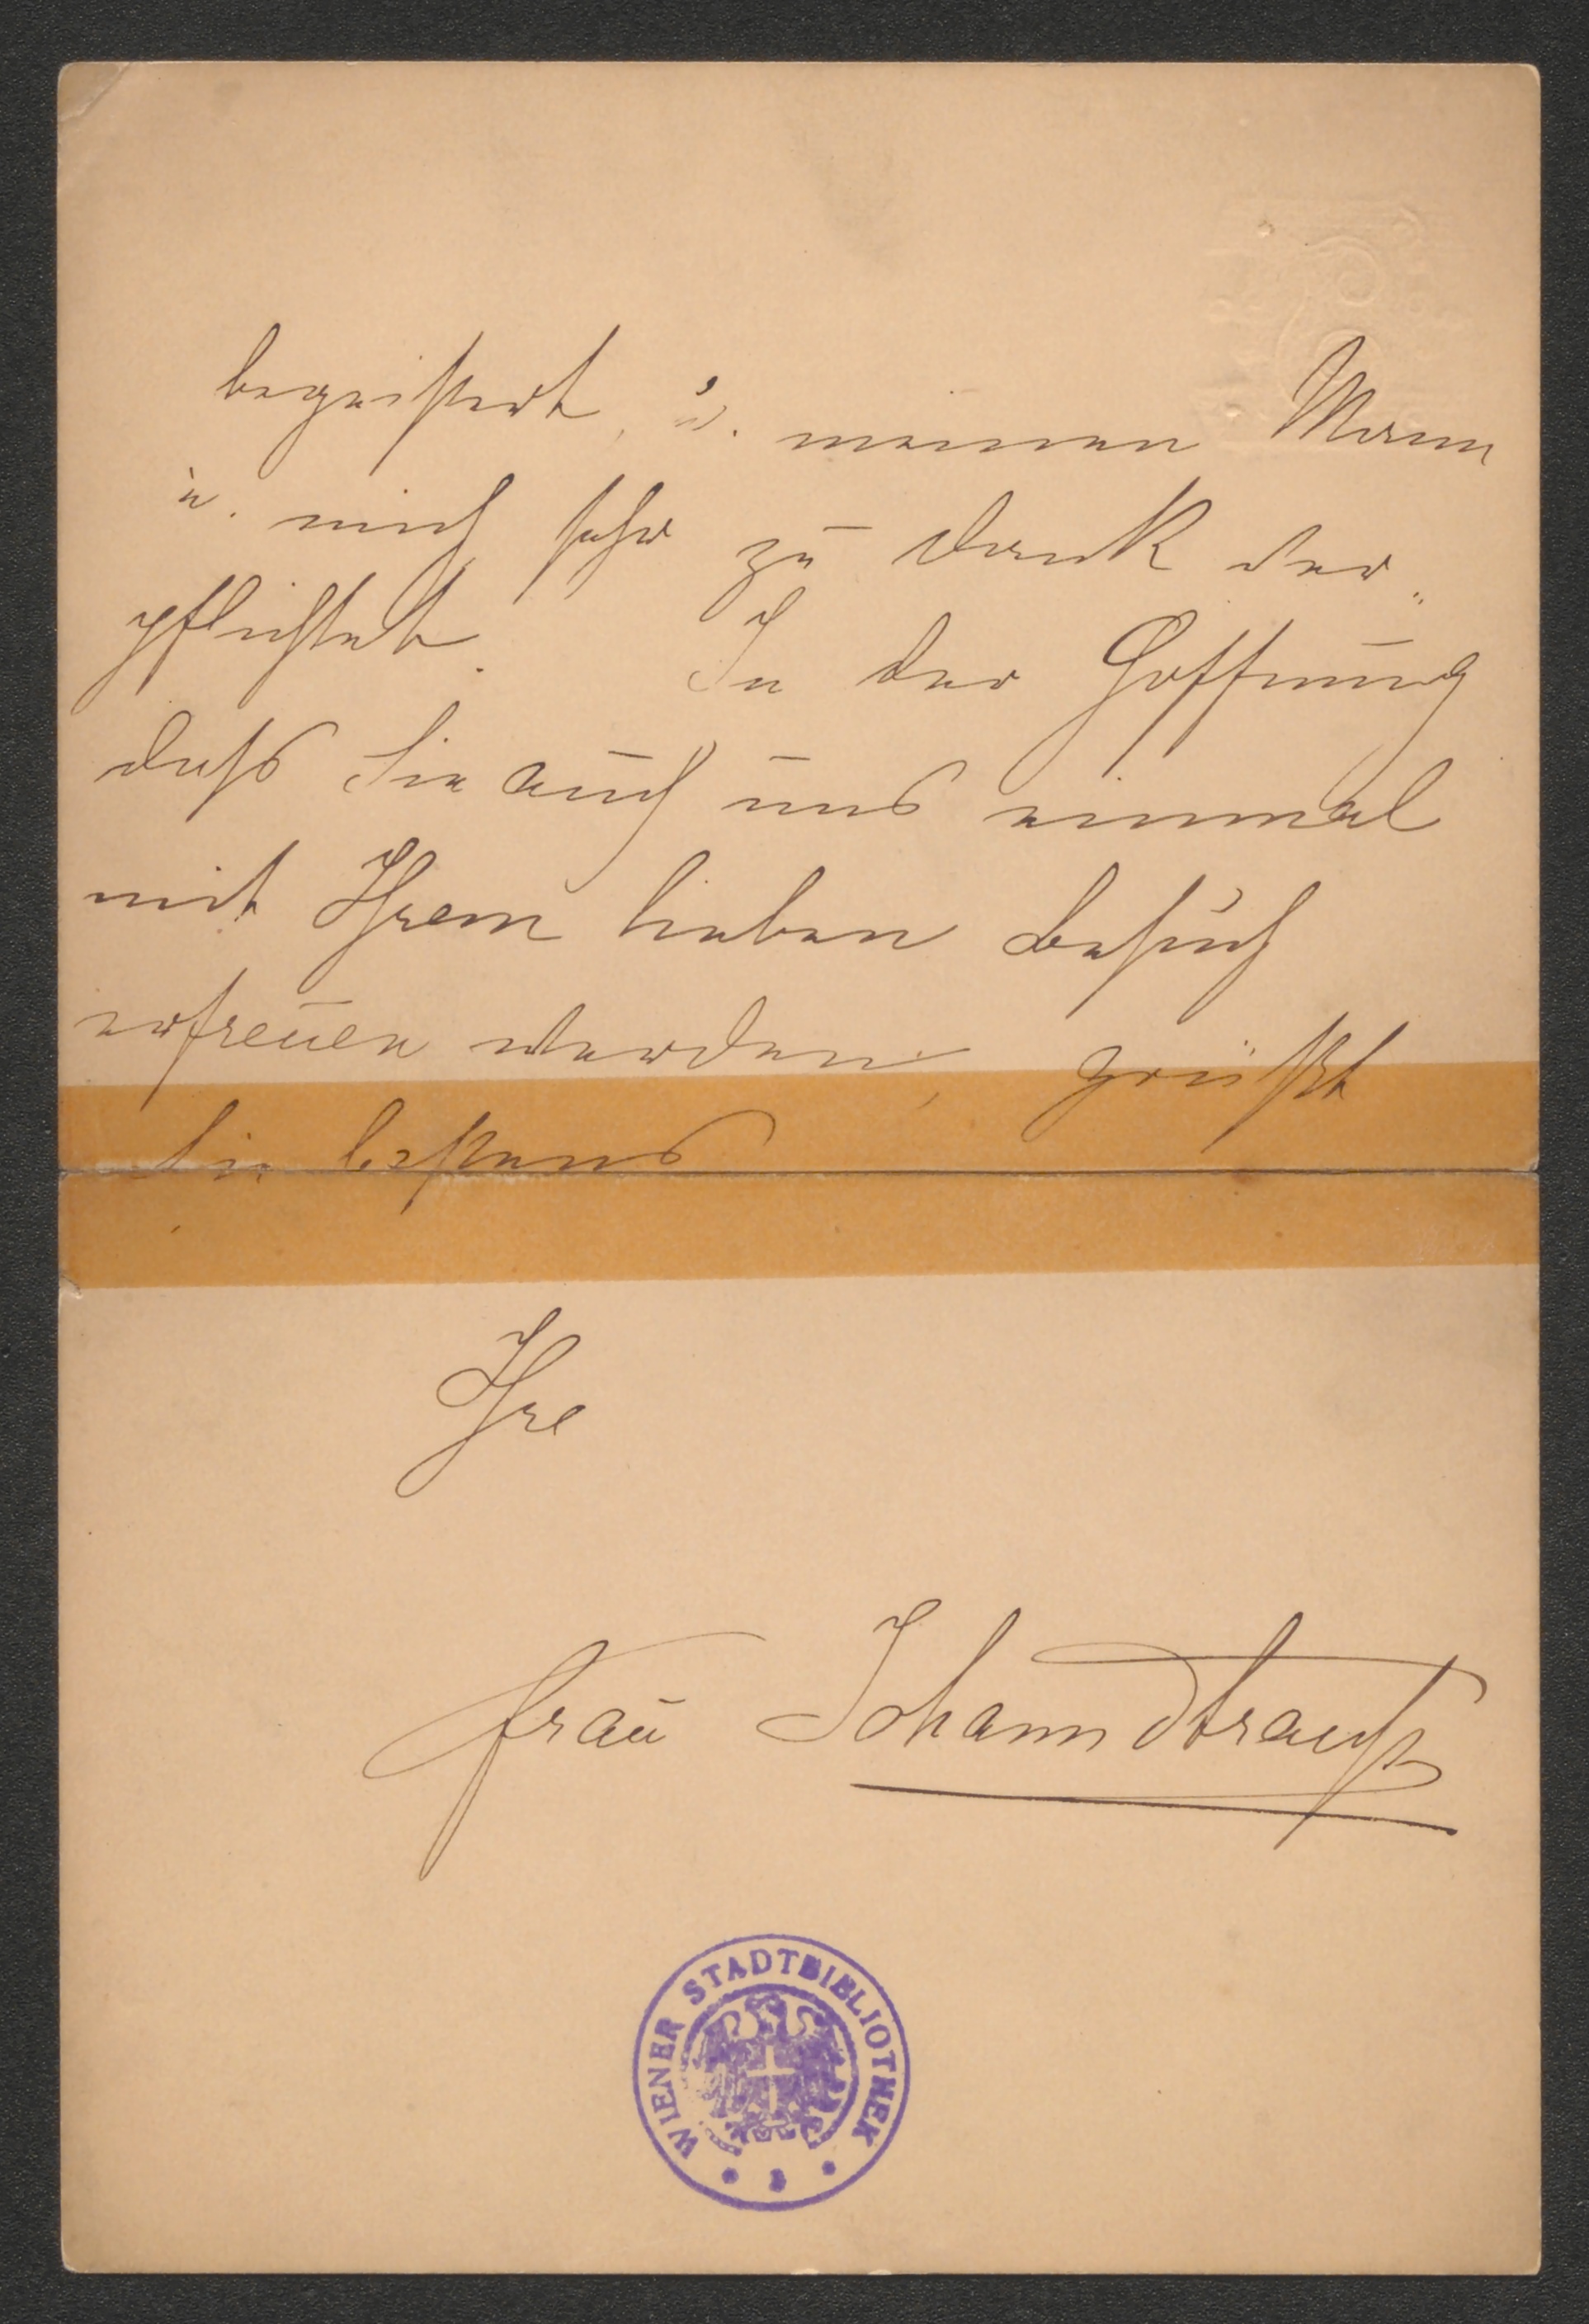 begeistert, u. meinen Mann
u. mich sehr zu Dank ver-
pflichtet. In der Hoffnung
daß Sie auch uns einmal
mit Ihrem lieben Besuch
erfreuen werden, grüßt
Sie bestens
Ihre
Frau Johann Strauß
WIENER STADTBIBLIOTHEK